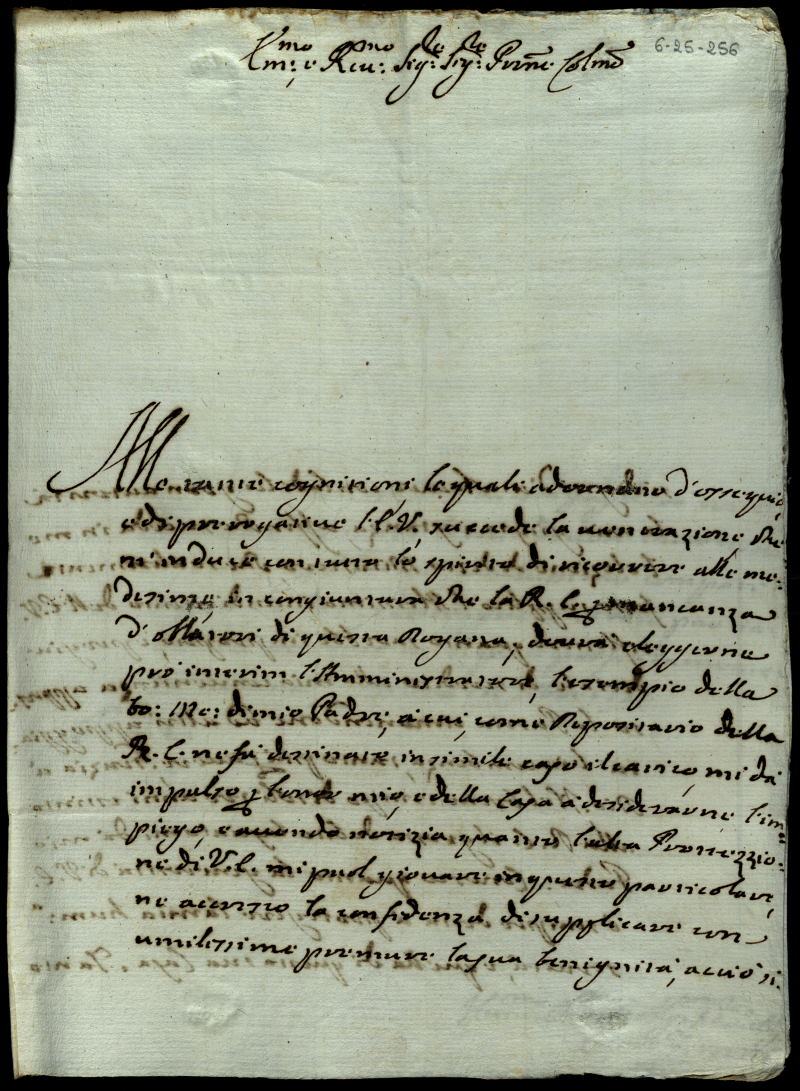 Em:mo e Reu:mo Sig:re Sig:re Prne Colmo
6-25-256
Alle tante cognitioni, le quali adornano d'ossequio,
e di prerogatiue l'E.V. succede la uenerazione che
m'induce con tutto lo spirito di ricourere alle me-
desime, in congiuntura che la R. C. per mancanza
d'ollatori di questa Dogana, dourà eleggerne
pro interim l'Amministratore, l'esempio della
bo: me: di mio Padre, a cui, come Depositario della
R. C. ne fù destinato in simile caso il carico, mi dà
impulso p honor mio, e della Casa à desiderarne l'im-
piego, e auendo notizia quanto l'alta Protezzio-
ne di V.E. mi puol giouare in questo particolare,
ne accerto la confidenza di supplicare con
umilissime premure la sua benignità, acciò si